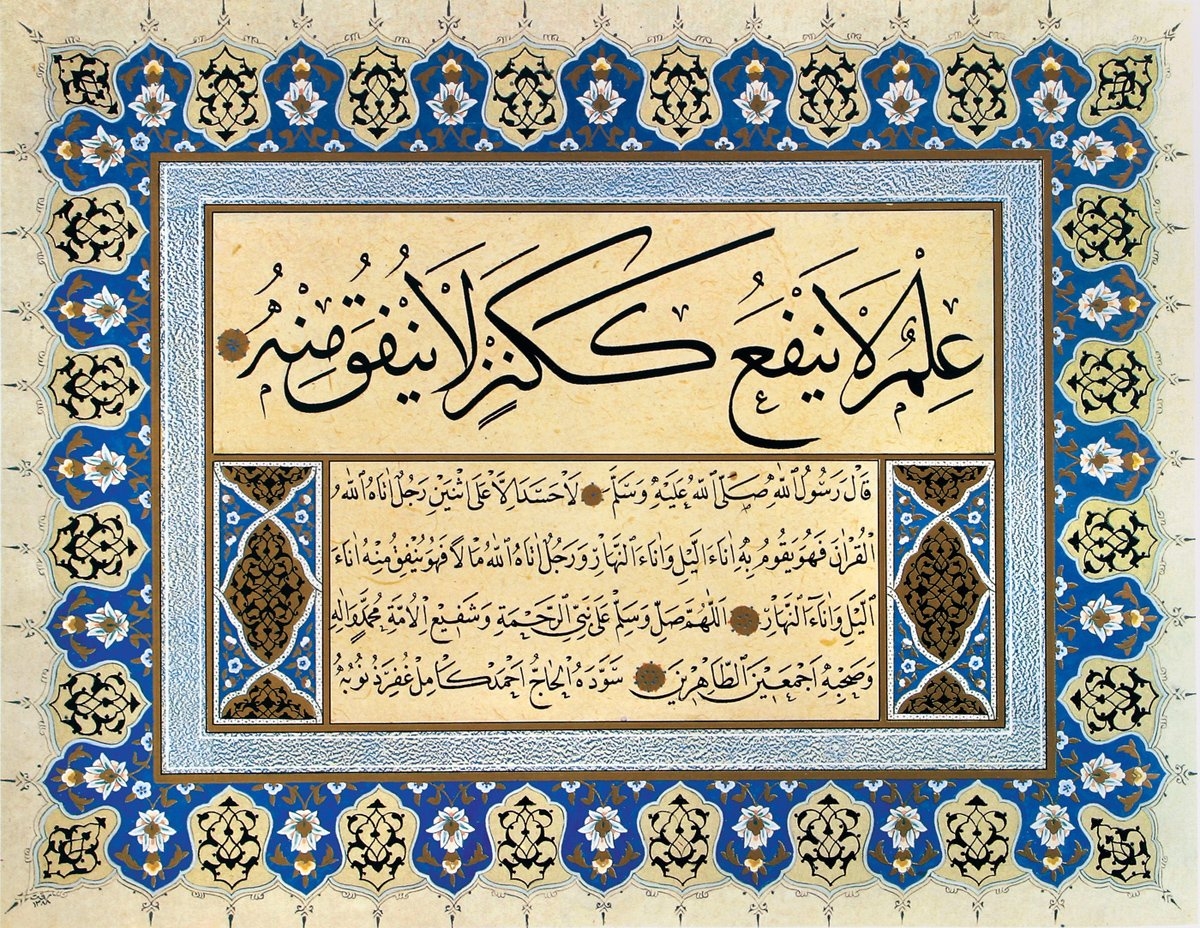 عِلْمٌ لَا يَنْفَعُ كَكَنْزٍ لَا يُنْفَقُ مِنْهُ
قَالَ رَسُولُ اللّٰهِ صَلَّى اللّٰهُ عَلَيْهِ وَسَلَّمَ لَا حَسَدَ اِلَّا عَلَى اثْنَيْنِ رَجُلٌ اٰتَاهُ اللّٰهُ
الْقُرْاٰنَ فَهُوَ يَقُومُ بِهِ اٰنَاءَ الَّيْلِ وَاٰنَاءَ النَّهَارِ وَرَجُلٌ اٰتَاهُ اللّٰهُ مَالًا فَهُوَ يُنْفِقُ مِنْهُ اٰنَاءَ
الَّيْلِ وَاٰنَاءَ النَّهَارِ اَللّٰهُمَّ صَلِّ وَسَلِّمْ عَلَى نَبِيِّ الرَّحْمَةِ وَشَفِيعِ الْاُمَّةِ مُحَمَّدٍ وَاٰلِهِ
وَصَحْبِهِ اَجْمَعِينَ الطَّاهِرِينَ سَوَّدَهُ الْحَاجُّ اَحْمَدْ كَامِلْ غُفِرَ ذُنُوبُهُ